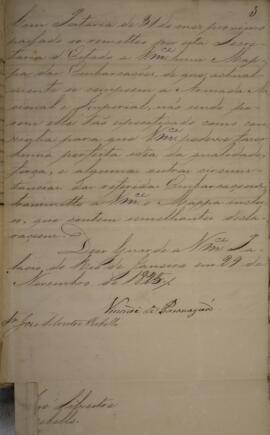 3
Com Portaria de 31 do mez proximo
passado se remetteo por esta Secre
taria d'Estado a Vmce hum Mappa
das Embarcações, de que actual
mente se compoem a Armada Na
cional e Imperial, não sendo po
rem elle tão especificado como con
vinha para que Vmce podesse fazer
huma perfeita idéa da qualidade,
força, e algumas outras circuns
tancias das referidas Embarcações,
transmitto a Vmce o Mappa inclu
so, que contem semelhantes decla
rações.
Deos Guarde a Vmce Pa
lacio do Rio de Janeiro em 29 de
Novembro de 1825
Visconde de Paranaguá
Sr José Silvestre Rebello
José Silvestre
Rebello